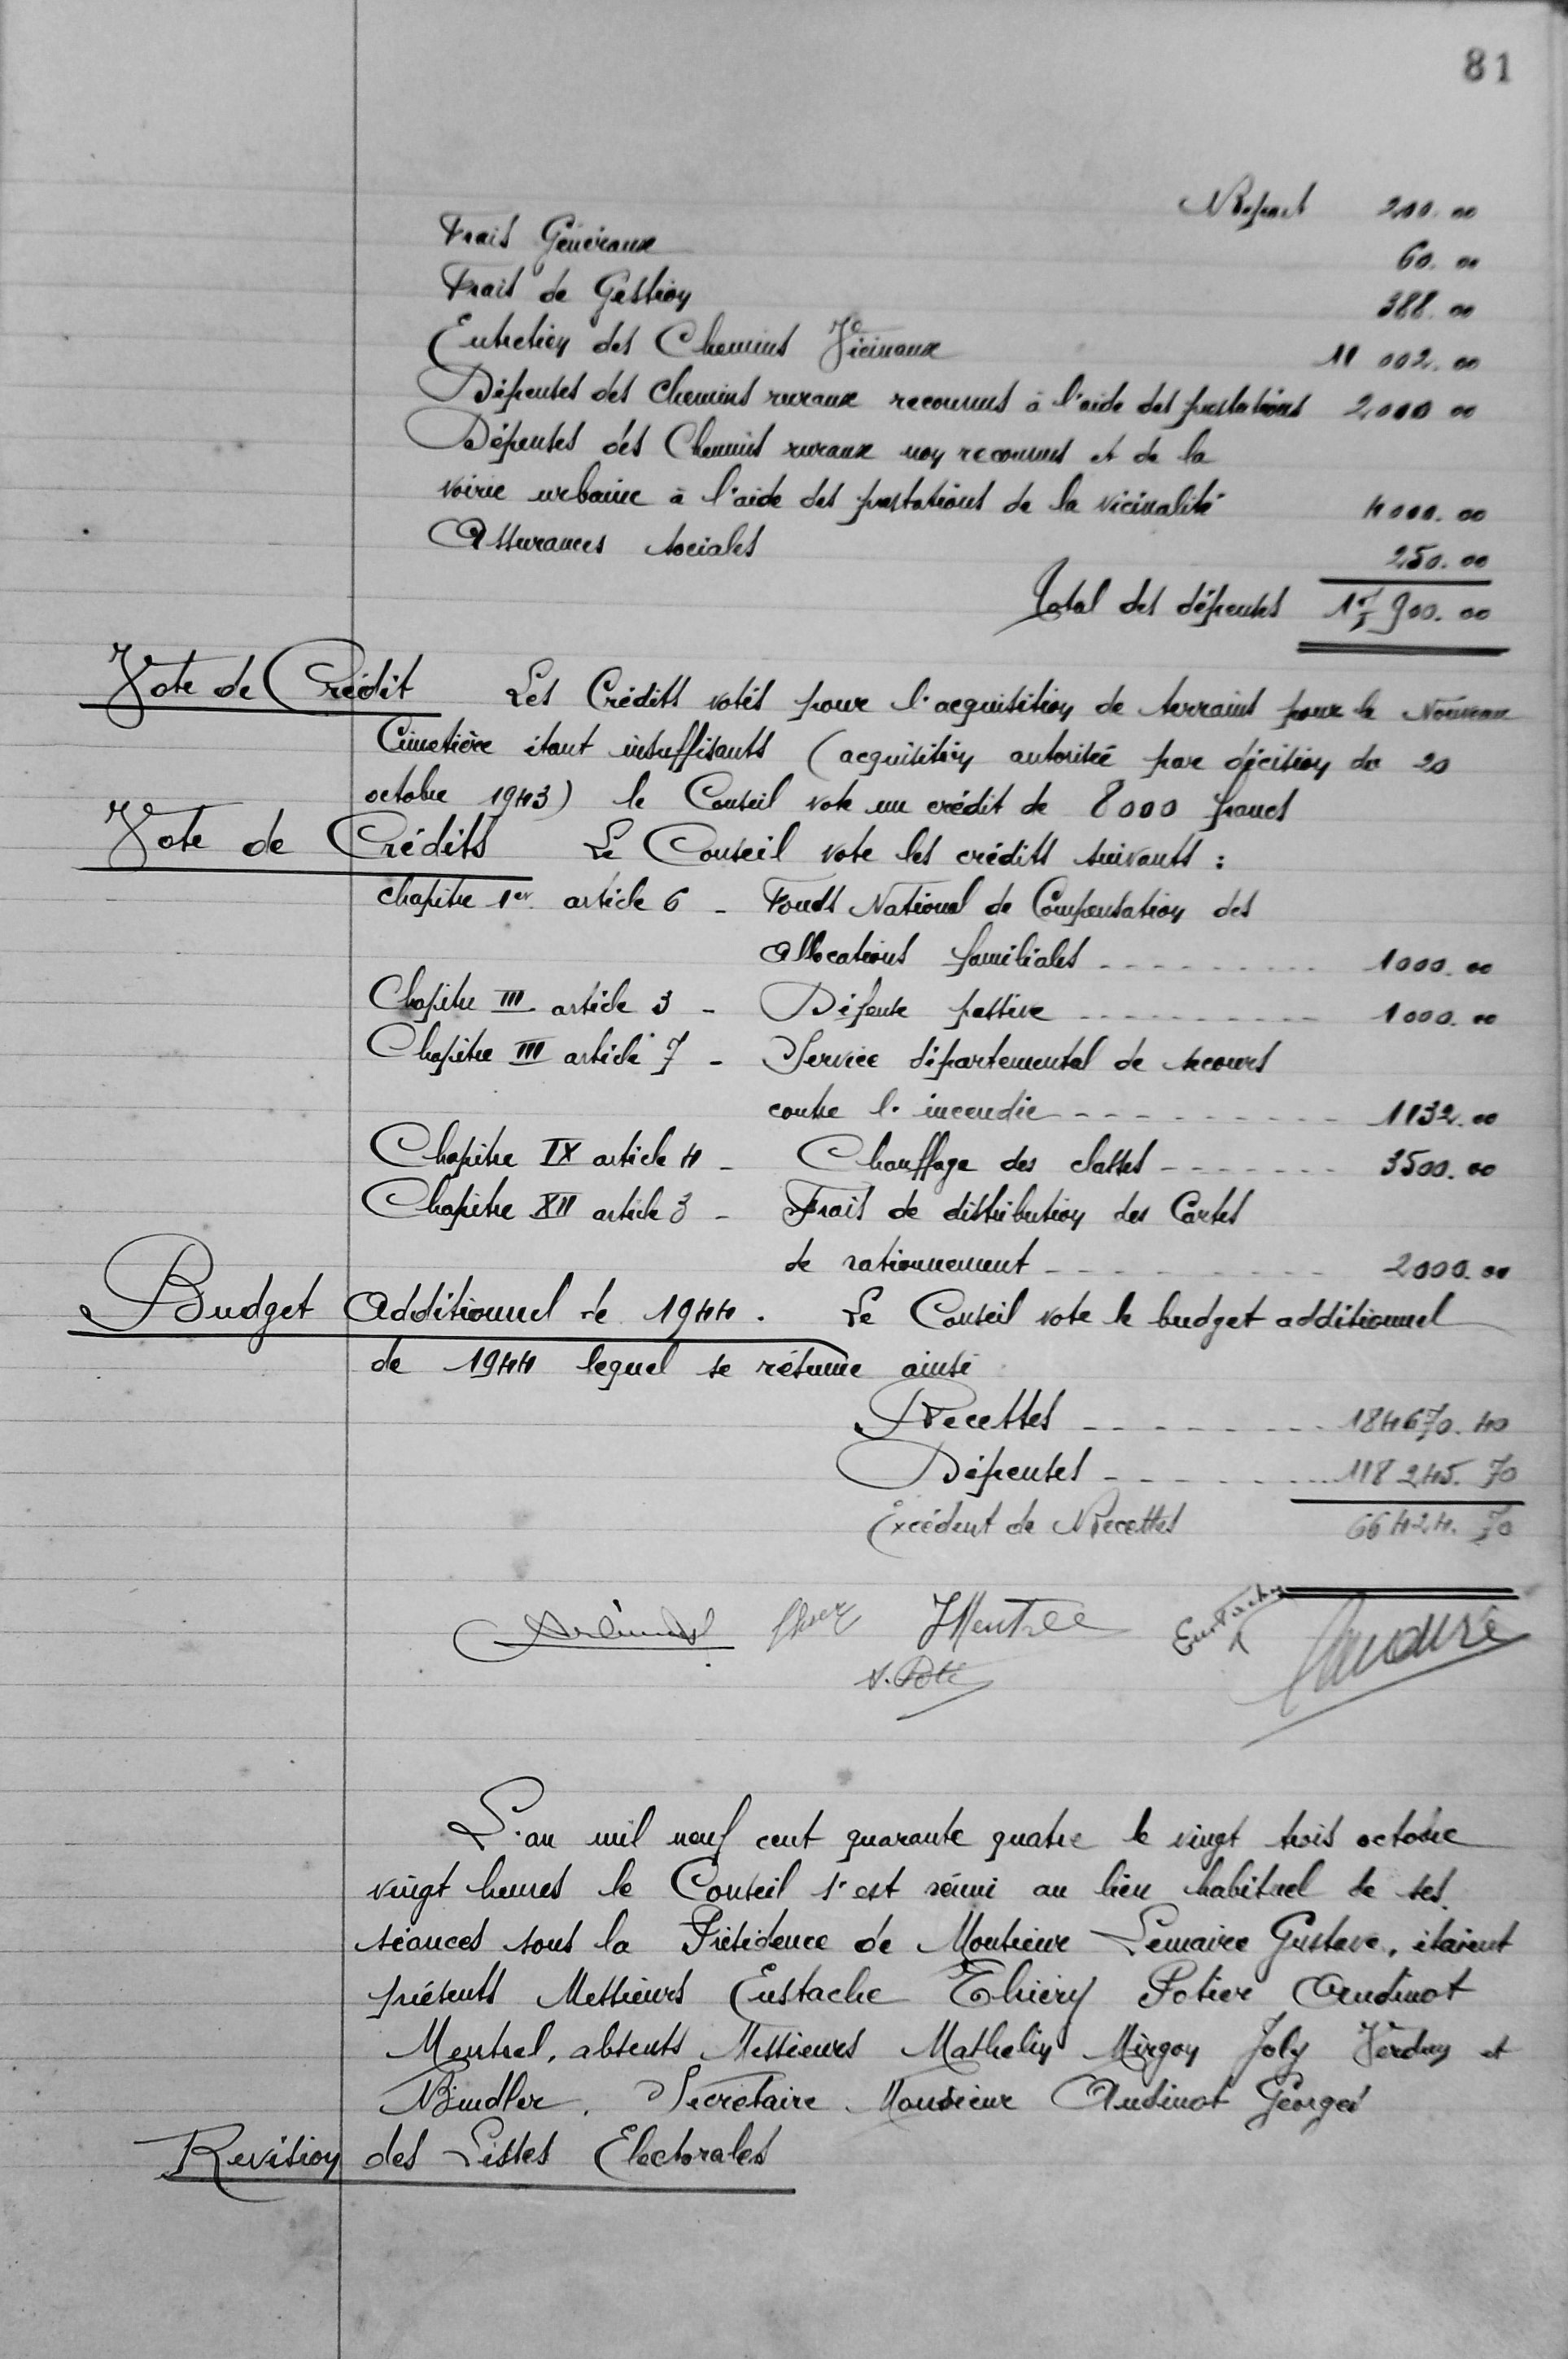 81
Report 200.00
Frais Généraux 60.00
Frais de Gestion 388.00
Entretien des Chemins Vicinaux 11 002.00
Dépenses des chemins ruraux reconnus à l'aide des prestations 2,000 00
Dépenses des Chemins ruraux non reconnus et de la
voirie urbaine à l'aide des prestations de la vicinalité 4000.00
Assurances sociales 250.00
Total des dépenses 17 900.00
Vote de Crédit Les Crédits votés pour l'acquisition de terrains pour le Nouveau
Cimetière étant insuffisants (acquisition autorisée par décision du 20
octobre 1943) le Conseil vote un crédit de 8000 francs
Vote de Crédits Le Conseil vote les crédits suivants :
chapitre 1er article 6 - Fonds National de Compensation des
allocations familiales - - - - - - - - - 1000.00
Chapitre III article 3 - Défense passive - - - - - - - - - - 1000.00
Chapitre III article 7 - Service départemental de secours
contre l'incendie - - - - - - - - - - 1132.00
Chapitre IX article 4 - Chauffage des classes - - - - - - - 3500.00
Chapitre XII article 3 - Frais de distribution des Cartes
de rationnement - - - - - - - - - 2000.00
Budget Additionnel de 1944. Le Conseil vote le budget additionnel
de 1944 lequel se résume ainsi
Recettes - - - - - - - - 184670.40
Dépenses - - - - - - - 118 245.70
Excédent de Recettes 66 424.70
Mentrel Eustache
L'an mil neuf cent quarante quatre le vingt trois octobre
vingt heures le Conseil s'est réuni au lieu habituel de ses
séances sous la Présidence de Monsieur Lemaire Gustave, étaient
présents Messieurs Eustache Thiery Potier Audinot
Mentrel, absents Messieurs Mathelin Mirgon Joly Verdun et
Bindler. Secrétaire Monsieur Audinot Georges
Revision des Listes Electorales